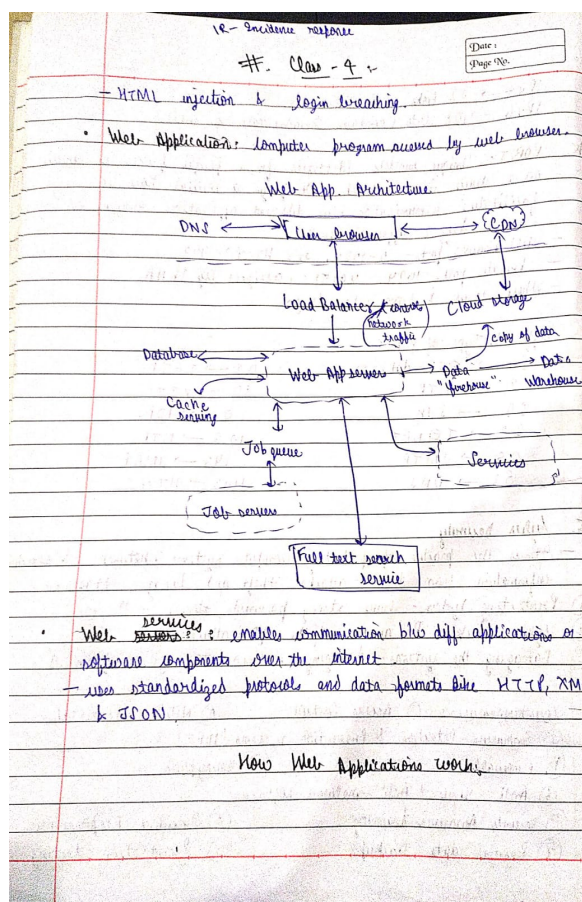 IR - Incidence response
Date :
Page No.
#. Class - 4 :-
- HTML injection & login breaching.
• Web Application: Computer program accessed by web browser.
Web App. Architecture
DNS
User browser
CDN
Load Balancer
(control network traffic)
Cloud storage
copy of data
Database
Web App servers
Data "firehouse"
Data Warehouse
Cache serving
Job queue
Services
Job servers
Full text search
service
• Web services : enables communication b/w diff applications or
software components over the internet
- uses standardized protocols and data formats like HTTP, XM
& JSON.
How Web Applications work: